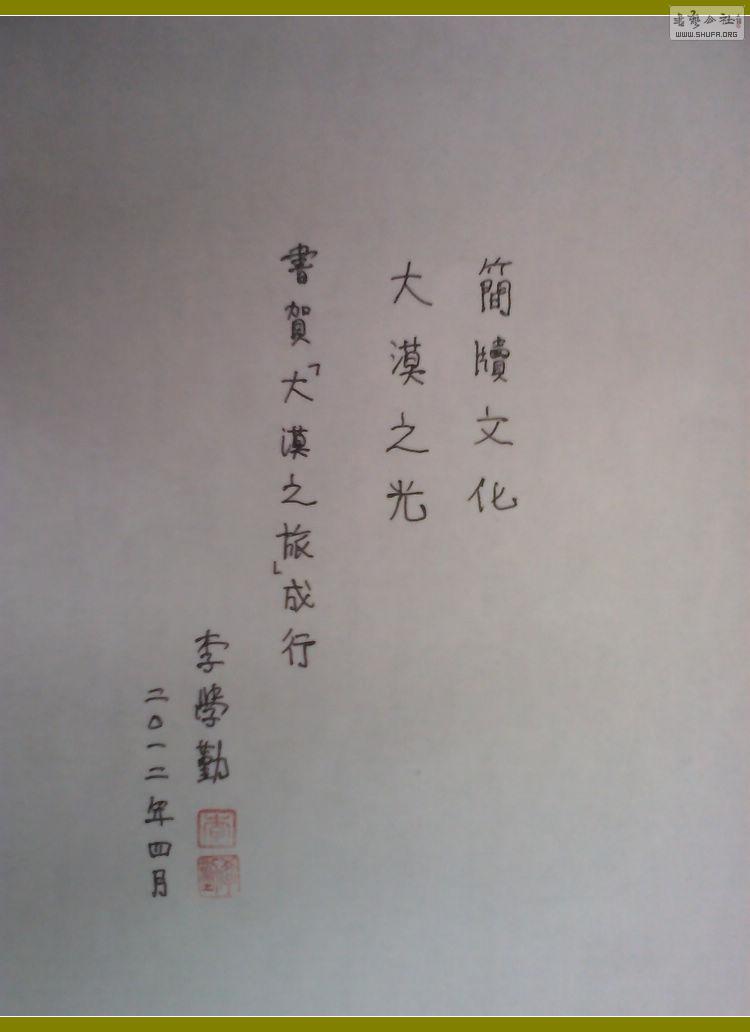 簡牘文化
大漠之光
書賀「大漠之旅」成行
李學勤
二〇一二年四月
書藝公社
WWW.SHUFA.ORG